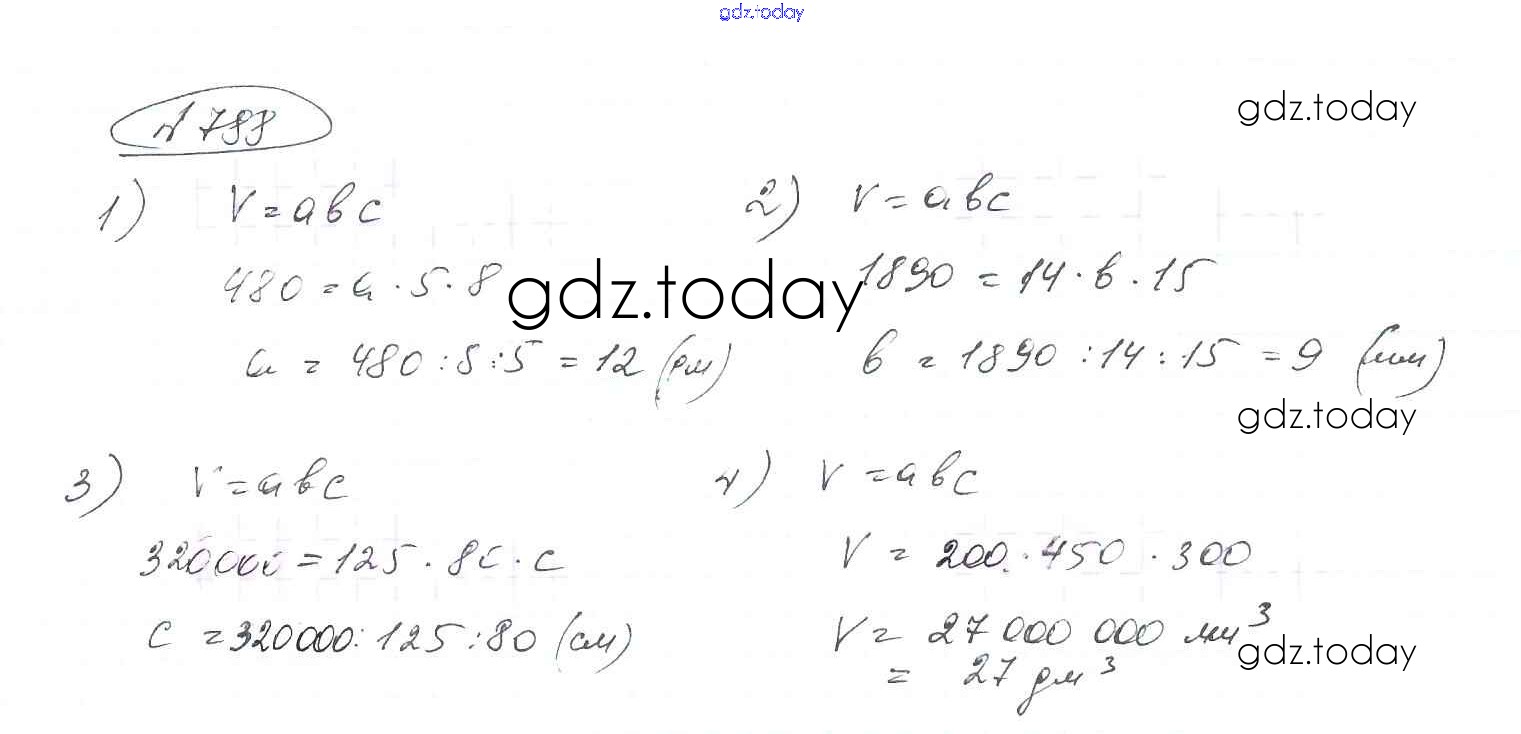 gdz.today
№ 788
gdz.today
1) V = abc
480 = a · 5 · 8
gdz.today
a = 480 : 8 : 5 = 12 (дм)
2) V = abc
1890 = 14 · b · 15
b = 1890 : 14 : 15 = 9 (мм)
gdz.today
3) V = abc
320000 = 125 · 80 · c
c = 320000 : 125 : 80 (см)
4) V = abc
V = 200 · 450 · 300
V = 27 000 000 мм³
gdz.today
= 27 дм³